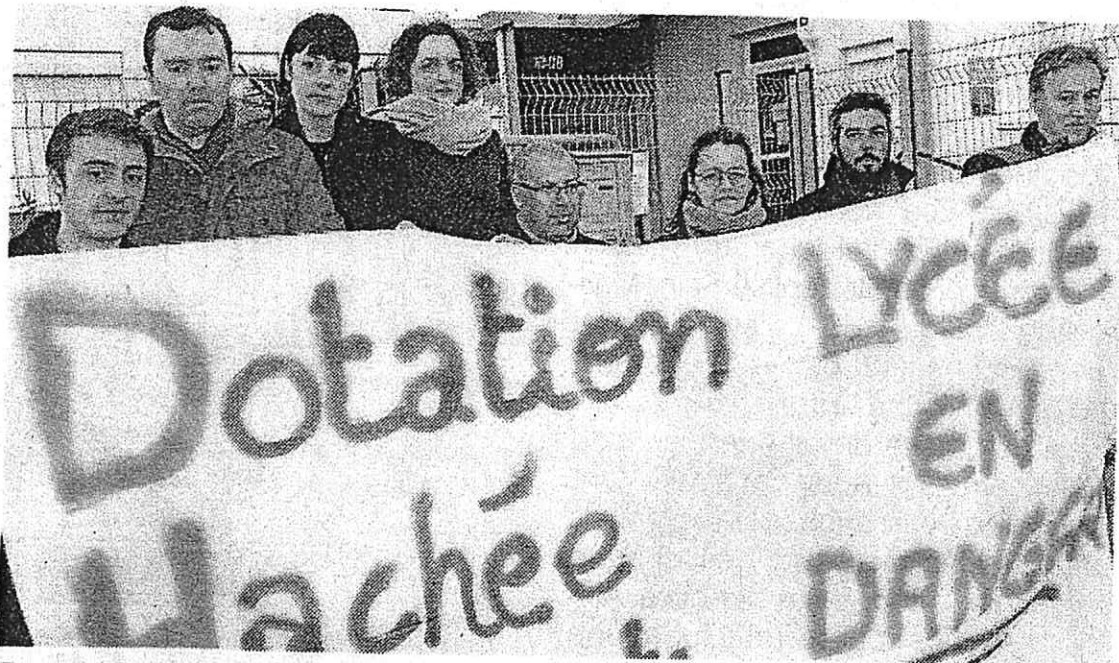 Dotation
Hachée
LYCÉE
EN
DANGER